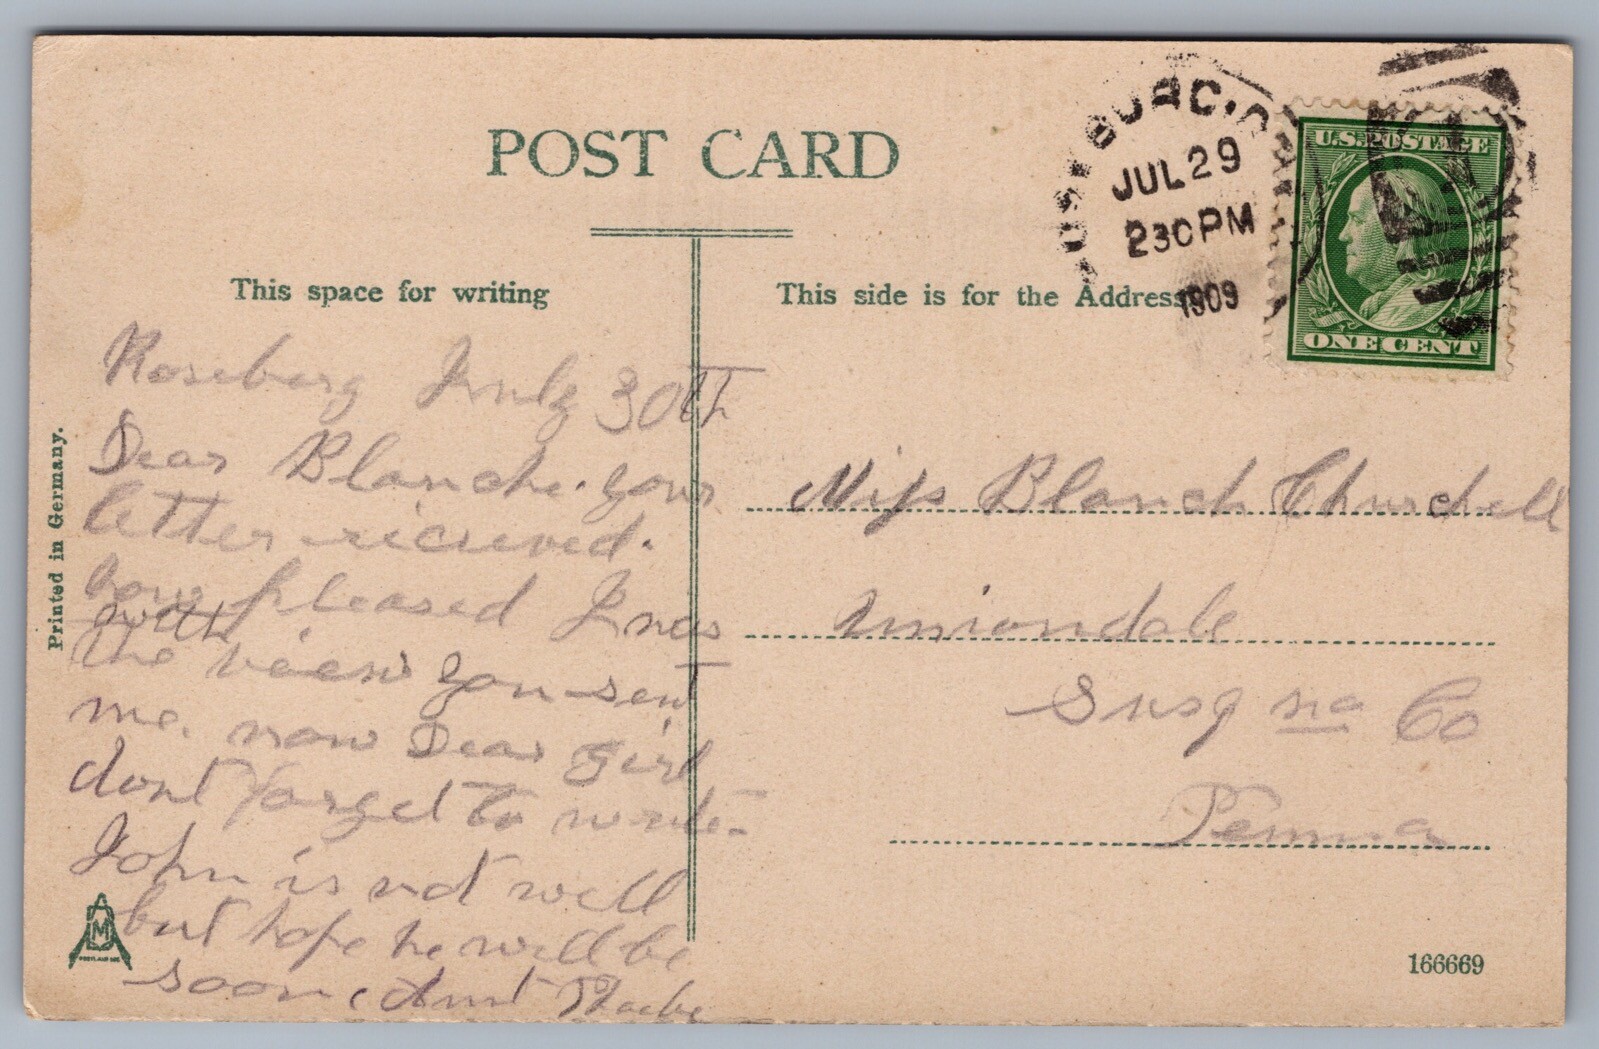 POST CARD
This space for writing
This side is for the Address
JUL 29
2 30 PM
1909
U.S. POSTAGE
ONE CENT
Roseburg July 30th
Dear Blanche. your
letter recieved.
how pleased I was
with
the views you sent
me. now Dear Girl
dont forget to write.
John is not well
but hope he will be
soon, Aunt Phoebe
Miss Blanch Churchell
Uniondale
Susq na Co
Penna
Printed in Germany.
166669